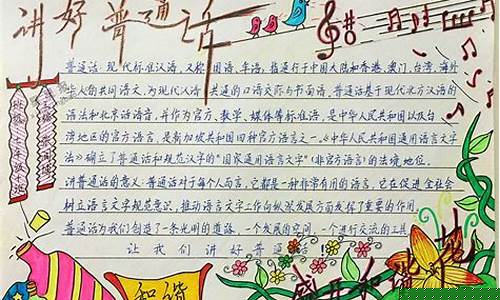 讲好普通话
普通话:现代标准汉语,又称国语、华语,指通行于中国大陆和香港、澳门、台湾、海外
华人的共同语文,为现代汉语共通的口语交际与书面语。普通话基于现代北方汉语的
语法和北京话语音,并作为官方、教学、媒体等标准语,是中华人民共和国以及台
湾地区的官方语言、是新加坡共和国四种官方语言之一。《中华人民共和国通用语言文字
法》确立了普通话和规范汉字的“国家通用语言文字”(非官方语言)的法境地位。
讲普通话的意义:普通话对于每个人而言,它都是一种非常有用的语言,它在促进全社会
树立语言文字规范意识,推动语言文字工作向纵深发展方面发挥了重要的作用。
普通话为我们创造了一条光明的道路,一个发展的空间,一个进行交流的工具。
让我们讲好普通话!
和谐
盛开和谐花